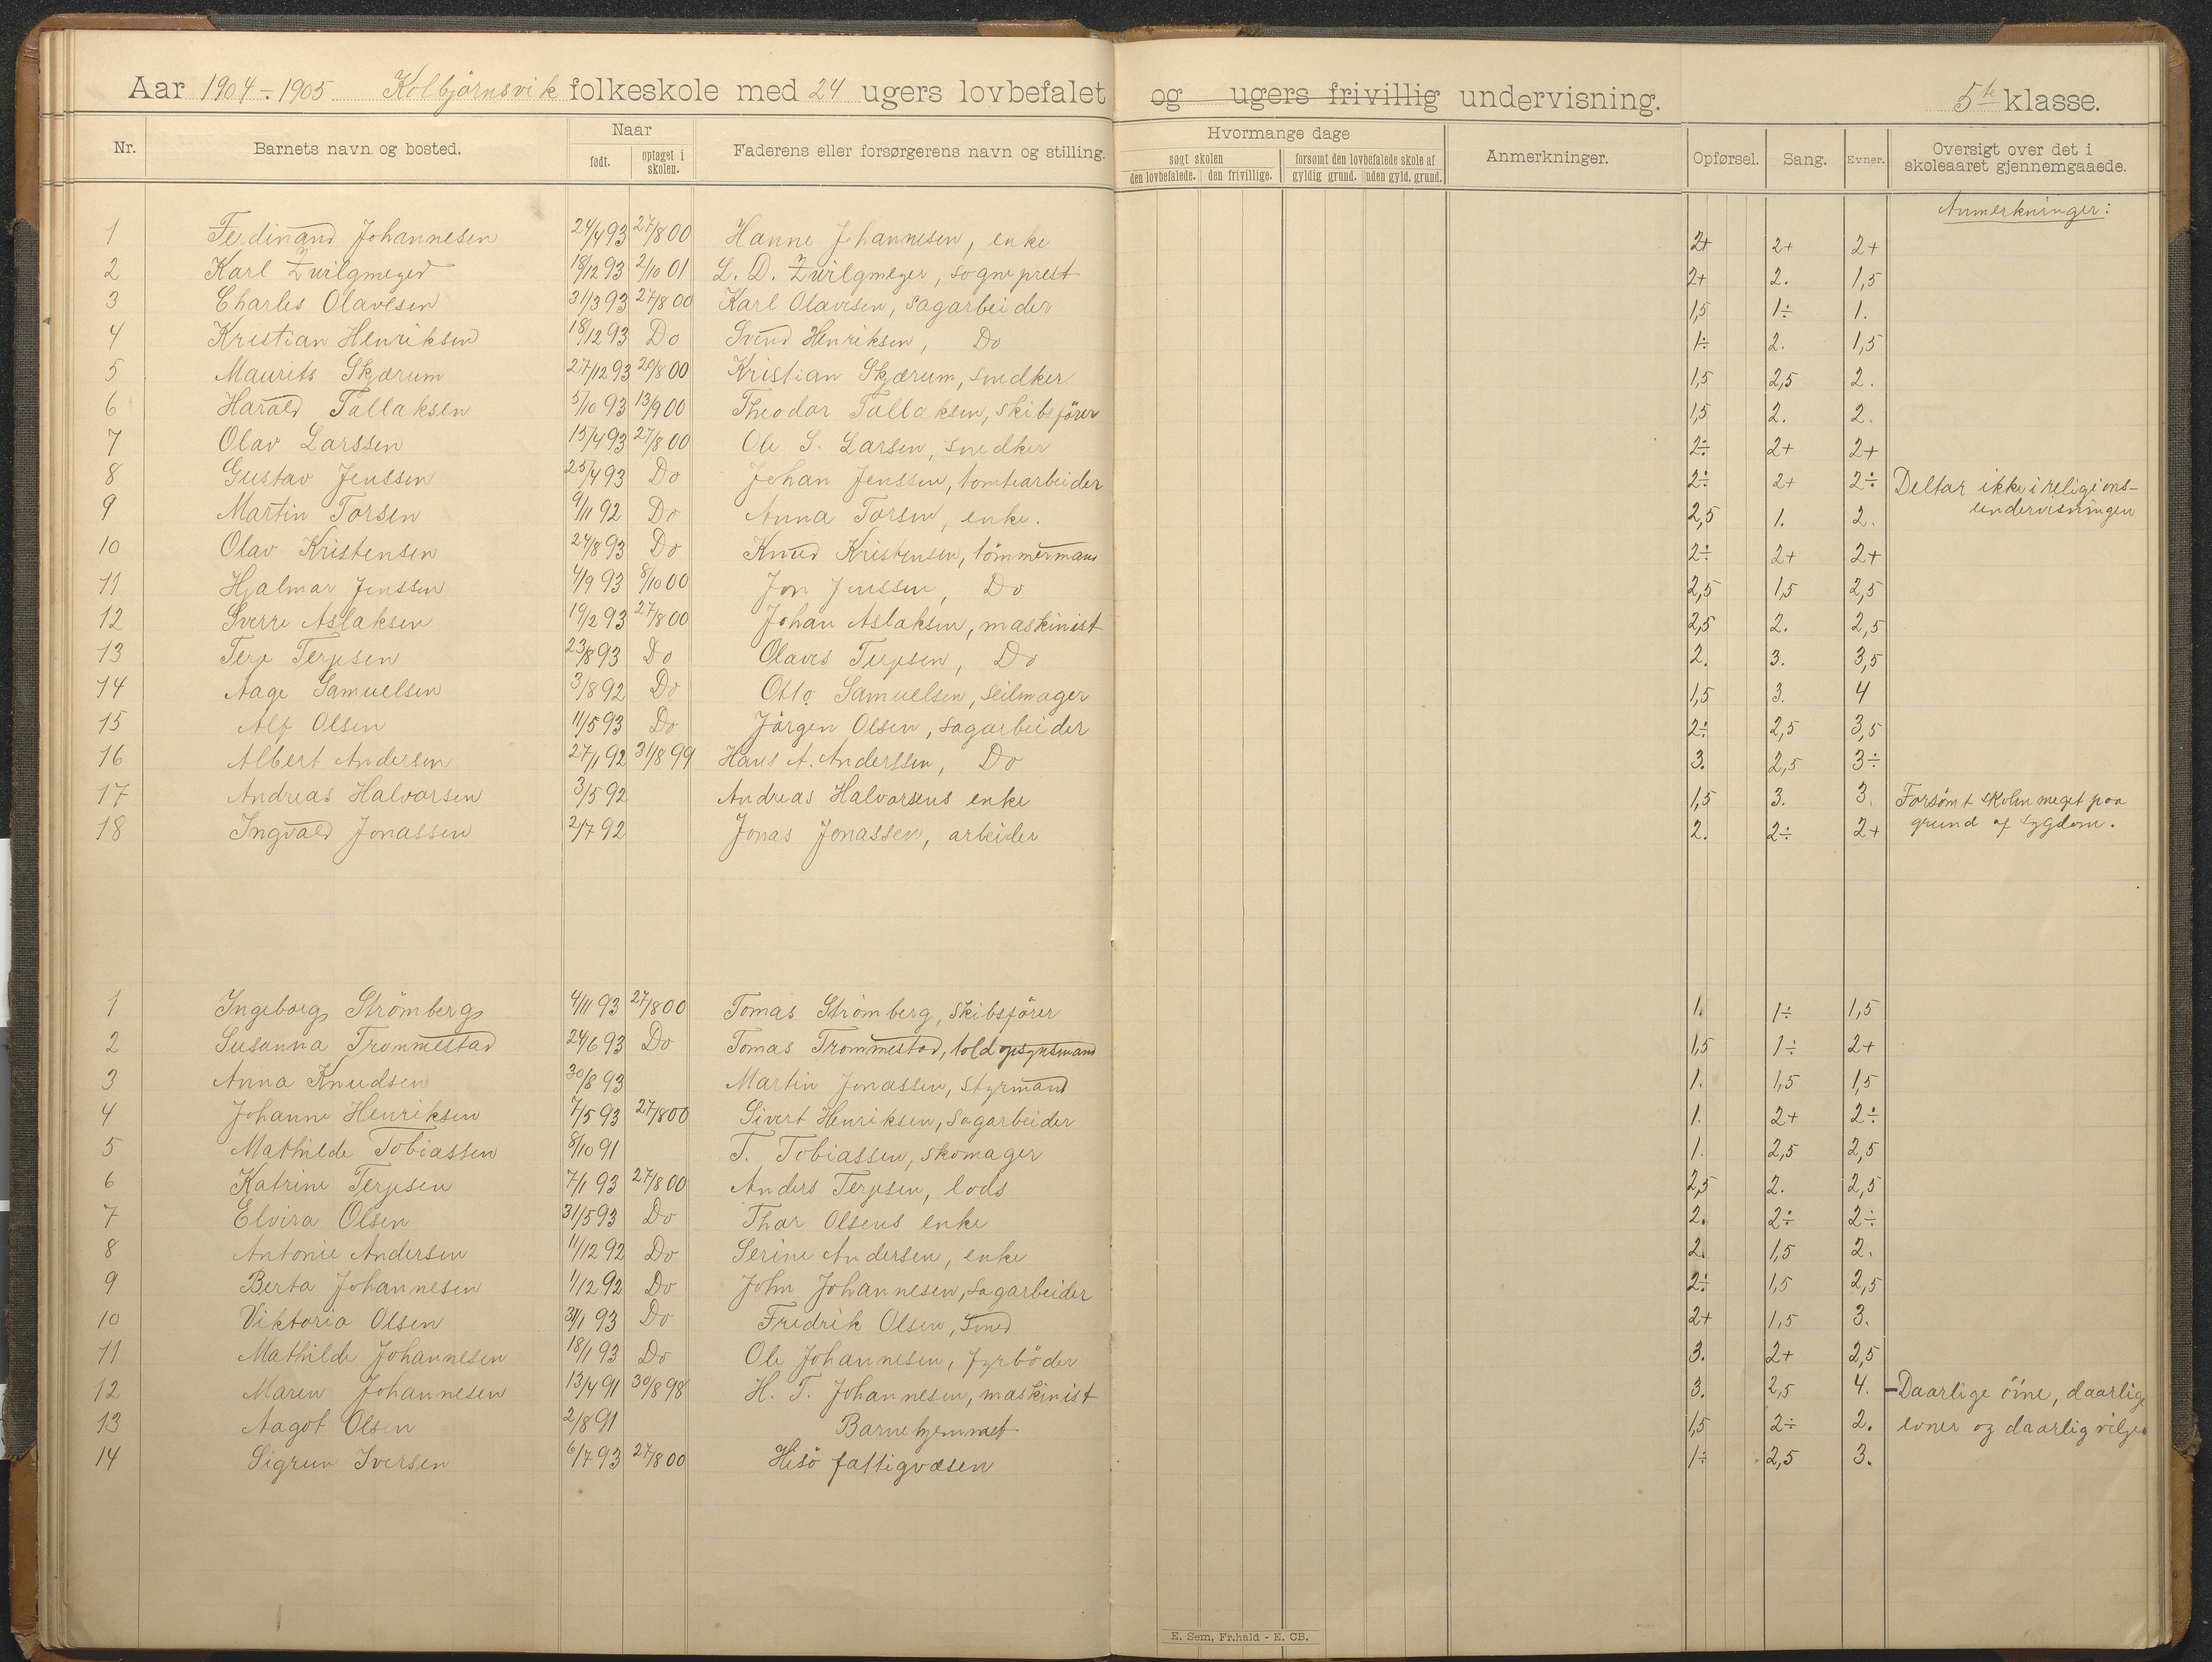 Aar 1904-1905 Kolbjörnsvik folkeskole med 24 ugers lovbefalet og ugers frivillig undervisning. 5te klasse.
Nr. Barnets navn og bosted. Naar født. optaget i skolen. Faderens eller forsørgerens navn og stilling. Hvormange dage søgt skolen den lovbefalede. den frivillige. forsømt den lovbefalede skole af gyldig grund. uden gyld. grund. Anmerkninger. Opførsel. Sang. Evner. Oversigt over det i skoleaaret gjennemgaaede.
Anmerkninger:
1 Ferdinand Johannesen 24/4 93 27/8 00 Hanne Johannesen, enke 2+ 2+ 2+
2 Karl Zwilgmeyer 18/12 93 2/10 01 L. D. Zwilgmeyer, sogneprest 2+ 2. 1,5
3 Charles Olavesen 31/3 93 27/8 00 Karl Olavesen, sagarbeider 1,5 1÷ 1.
4 Kristian Henriksen 18/12 93 Do Svend Henriksen, Do 1÷ 2. 1,5
5 Maurits Skjærum 27/12 93 29/8 00 Kristian Skjærum, snedker 1,5 2,5 2.
6 Harald Tallaksen 5/10 93 13/9 00 Theodor Tallaksen, skibsförer 1,5 2. 2.
7 Olav Larssen 15/4 93 27/8 00 Ole S. Larsen, snedker 2÷ 2+ 2+
8 Gustav Jenssen 25/4 93 Do Johan Jenssen, tomtearbeider 2÷ 2+ 2÷ Deltar ikke i religions-
9 Martin Torsen 9/11 92 Do Anna Torsen, enke. 2,5 1. 2. undervisningen
10 Olav Kristensen 24/8 93 Do Knud Kristensen, tömmermand 2÷ 2+ 2+
11 Hjalmar Jenssen 4/9 93 8/10 00 Jon Jenssen, Do 2,5 1,5 2,5
12 Sverre Aslaksen 19/2 93 27/8 00 Johan Aslaksen, maskinist 2,5 2. 2,5
13 Terje Terjesen 23/8 93 Do Olaves Terjesen, Do 2. 3. 3,5
14 Aage Samuelsen 3/8 92 Do Otto Samuelsen, seilmager 1,5 3. 4
15 Alf Olsen 11/5 93 Do Jörgen Olsen, sagarbeider 2÷ 2,5 3,5
16 Albert Andersen 27/1 92 31/8 99 Hans A. Anderssen, Do 3. 2,5 3÷
17 Andreas Halvorsen 3/5 92 Andreas Halvorsens enke 1,5 3. 3. Forsömt skolen meget paa
18 Ingvald Jonassen 2/7 92 Jonas Jonassen, arbeider 2. 2÷ 2+ grund af sygdom.
1 Ingeborg Strömberg 4/11 93 27/8 00 Tomas Strömberg, skibsförer 1. 1÷ 1,5
2 Susanna Trommestad 24/6 93 Do Tomas Trommestad, toldopsynsmand 1,5 1÷ 2+
3 Anna Knudsen 30/8 93 Martin Jonassen, styrmand 1. 1,5 1,5
4 Johanne Henriksen 7/5 93 27/8 00 Sivert Henriksen, sagarbeider 1. 2+ 2÷
5 Mathilde Tobiassen 8/10 91 T. Tobiassen, skomager 1. 2,5 2,5
6 Katrine Terjesen 7/1 93 27/8 00 Anders Terjesen, lods 2,5 2. 2,5
7 Elvira Olsen 31/5 93 Do Thor Olsens enke 2. 2÷ 2÷
8 Antonie Andersen 11/12 92 Do Serine Andersen, enke 2. 1,5 2.
9 Berta Johannesen 1/12 92 Do John Johannesen, sagarbeider 2÷ 1,5 2,5
10 Viktoria Olsen 31/1 93 Do Fredrik Olsen, smed 2+ 1,5 3.
11 Mathilde Johannesen 18/1 93 Do Ole Johannesen, fyrböder 3. 2+ 2,5
12 Maren Johannesen 13/4 91 30/8 98 H. T. Johannesen, maskinist 3. 2,5 4. - Daarlige öine, daarlige
13 Aagot Olsen 2/8 91 Barnehjemmet 1,5 2÷ 2. evner og daarlig vilje.
14 Sigrun Iversen 6/7 93 27/8 00 Hisö fattigvæsen 1÷ 2,5 3.
E. Sem, Fr.hald - E. CB.